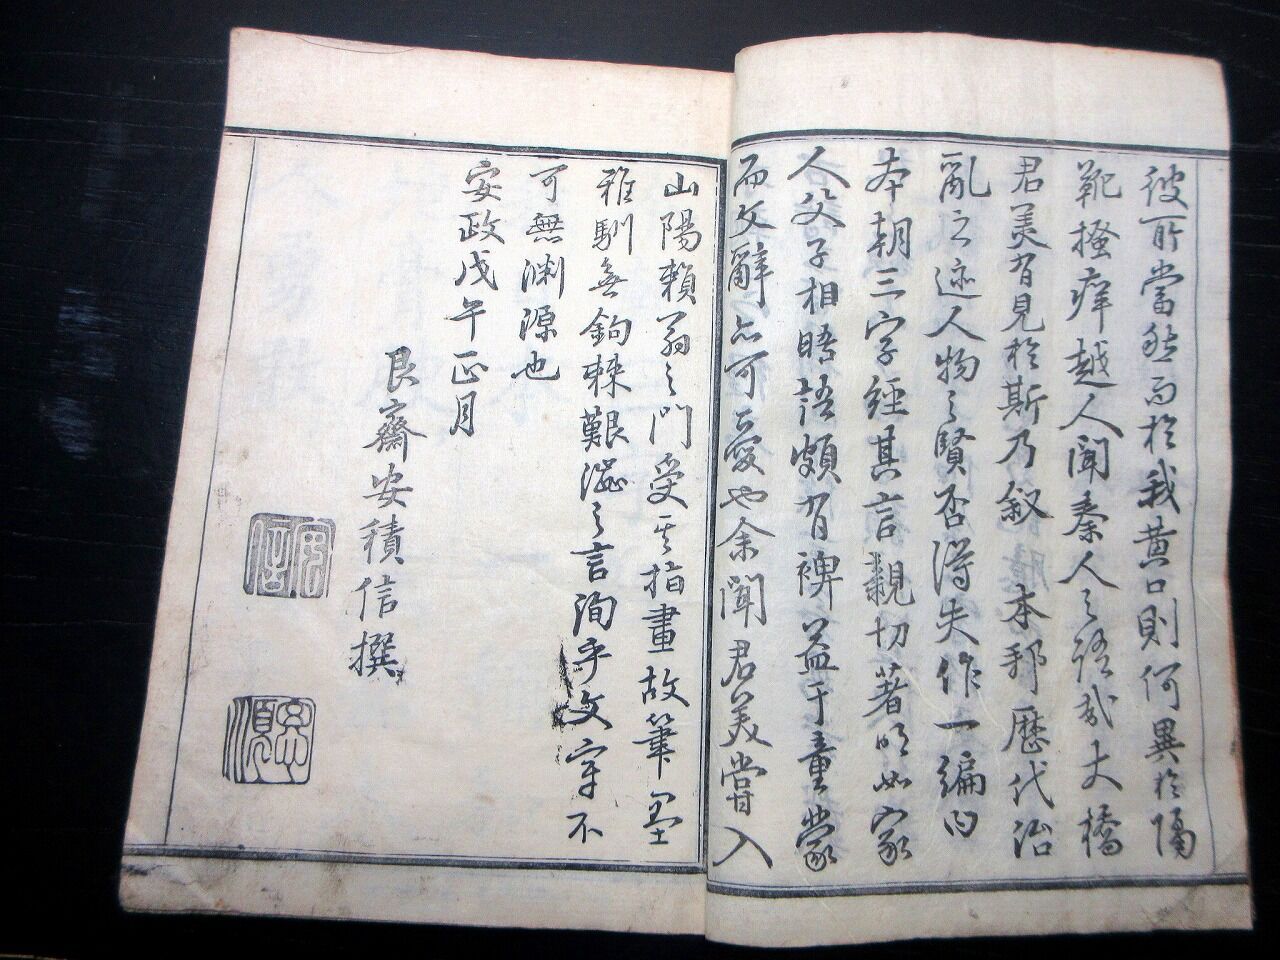 彼所當然而於我黄口則何異於隔
靴掻痒越人聞秦人之語哉大橋
君美有見於斯乃叙 本邦歴代治
亂之迹人物之賢否得失作一編曰
本朝三字經其言親切著明如家
人父子相晤語頗有裨益于童蒙
而文辭亦可愛也余聞君美嘗入
山陽頼翁之門受其指畫故筆墨
雅馴無鉤棘艱澁之言洵乎文字不
可無渊源也
安政戊午正月
艮齋安積信撰